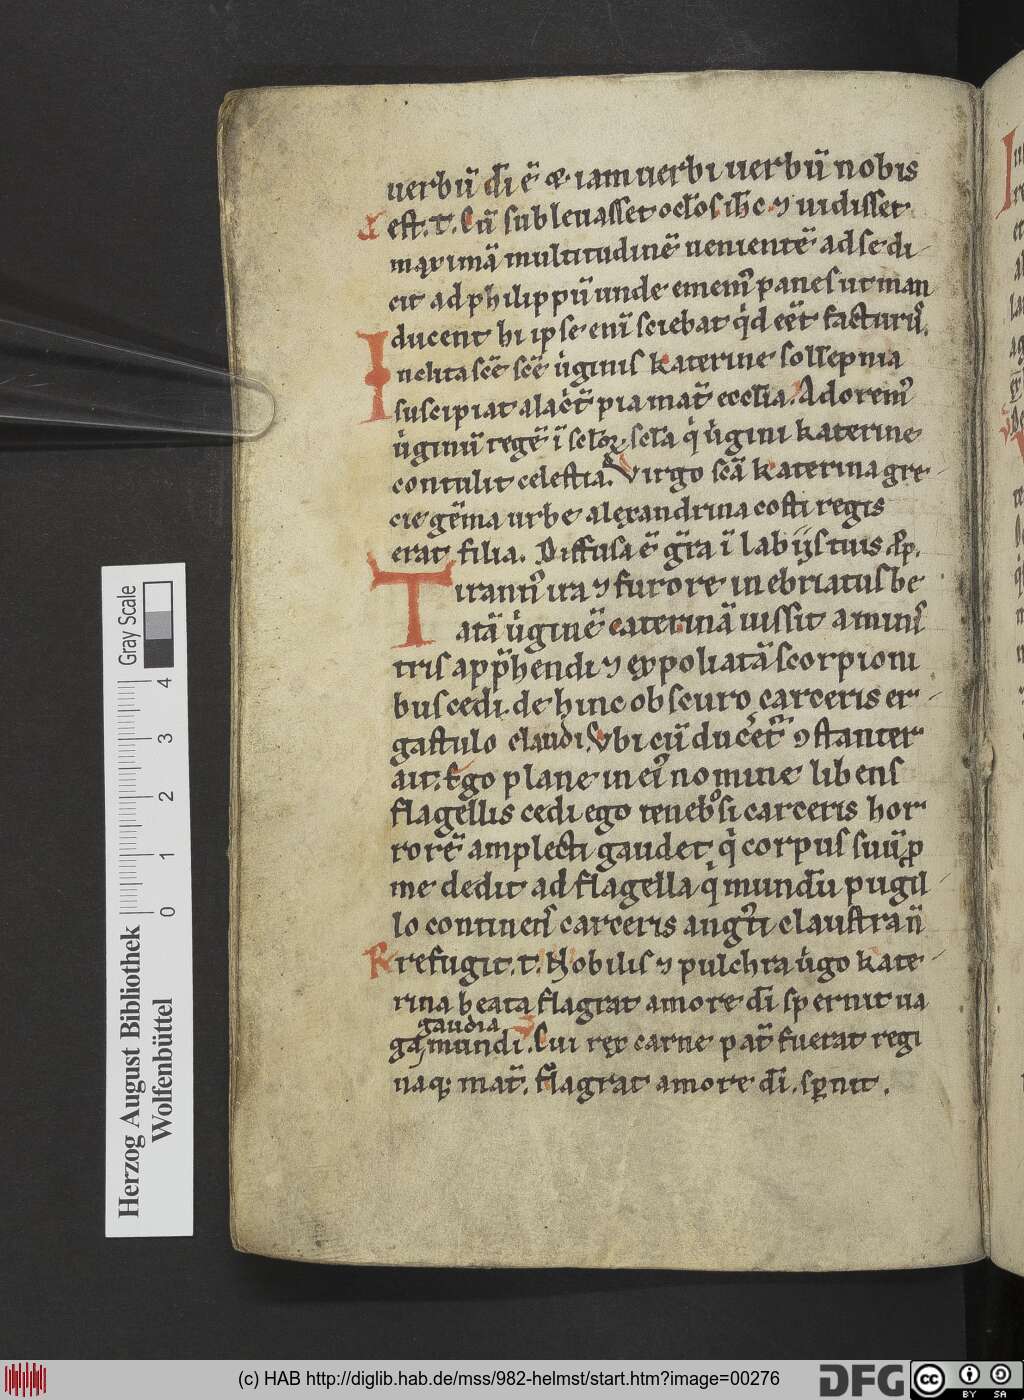 uerbū dī ē & iam uerbi uerbū nobis
est. t. Cū subleuasset oclos ih̄c ⁊ uidisset
maximā multitudinē uenientē ad se di
cit ad philippū unde emem᷒ panes ut man
ducent hi ipse enī sciebat qd eēt facturꝰ.
Inclita scē scē uginis katerine sollepnia
suscipiat alacͥt pia mat̄ ecclīa. Adorem᷒
uginū regē ī sclōꝝ scla qͥ ugini katerine
contulit celestia. Virgo scā katerina gre
cie gēma urbe alexandrina costi regis
erat filia. Diffusa ē grā ī labijs tuis. Pp.
Tirann᷒ ira ⁊ furore inebriatus be
atā uginē caterinā iussit a minis
tris apphendi ⁊ expoliatā scorpioni
bus cedi. de hinc obscuro carceris er
gastulo claudi. Vbi cū ducet᷑ ꝯstanter
ait. Ego plane in ei᷒ nomine libens
flagellis cedi ego tenebrosi carceris hor
rorē amplecti gaudet qͥ corpus suū ꝓ
me dedit ad flagella qͥ mundū pugil
lo continens carceris angti claustra n̄
R refugit. t. Nobilis ⁊ pulchra ugo kate
rina beata flagrat amore dī spernit ua
gaudia
gaq; mundi. Cui rex carne pat̄ fuerat regi
naq; mat̄. flagrat amore dī. sꝑnit.
Herzog August Bibliothek
Wolfenbüttel
0 1 2 3 4
Gray Scale
(c) HAB http://diglib.hab.de/mss/982-helmst/start.htm?image=00276
DFG
cc BY SA